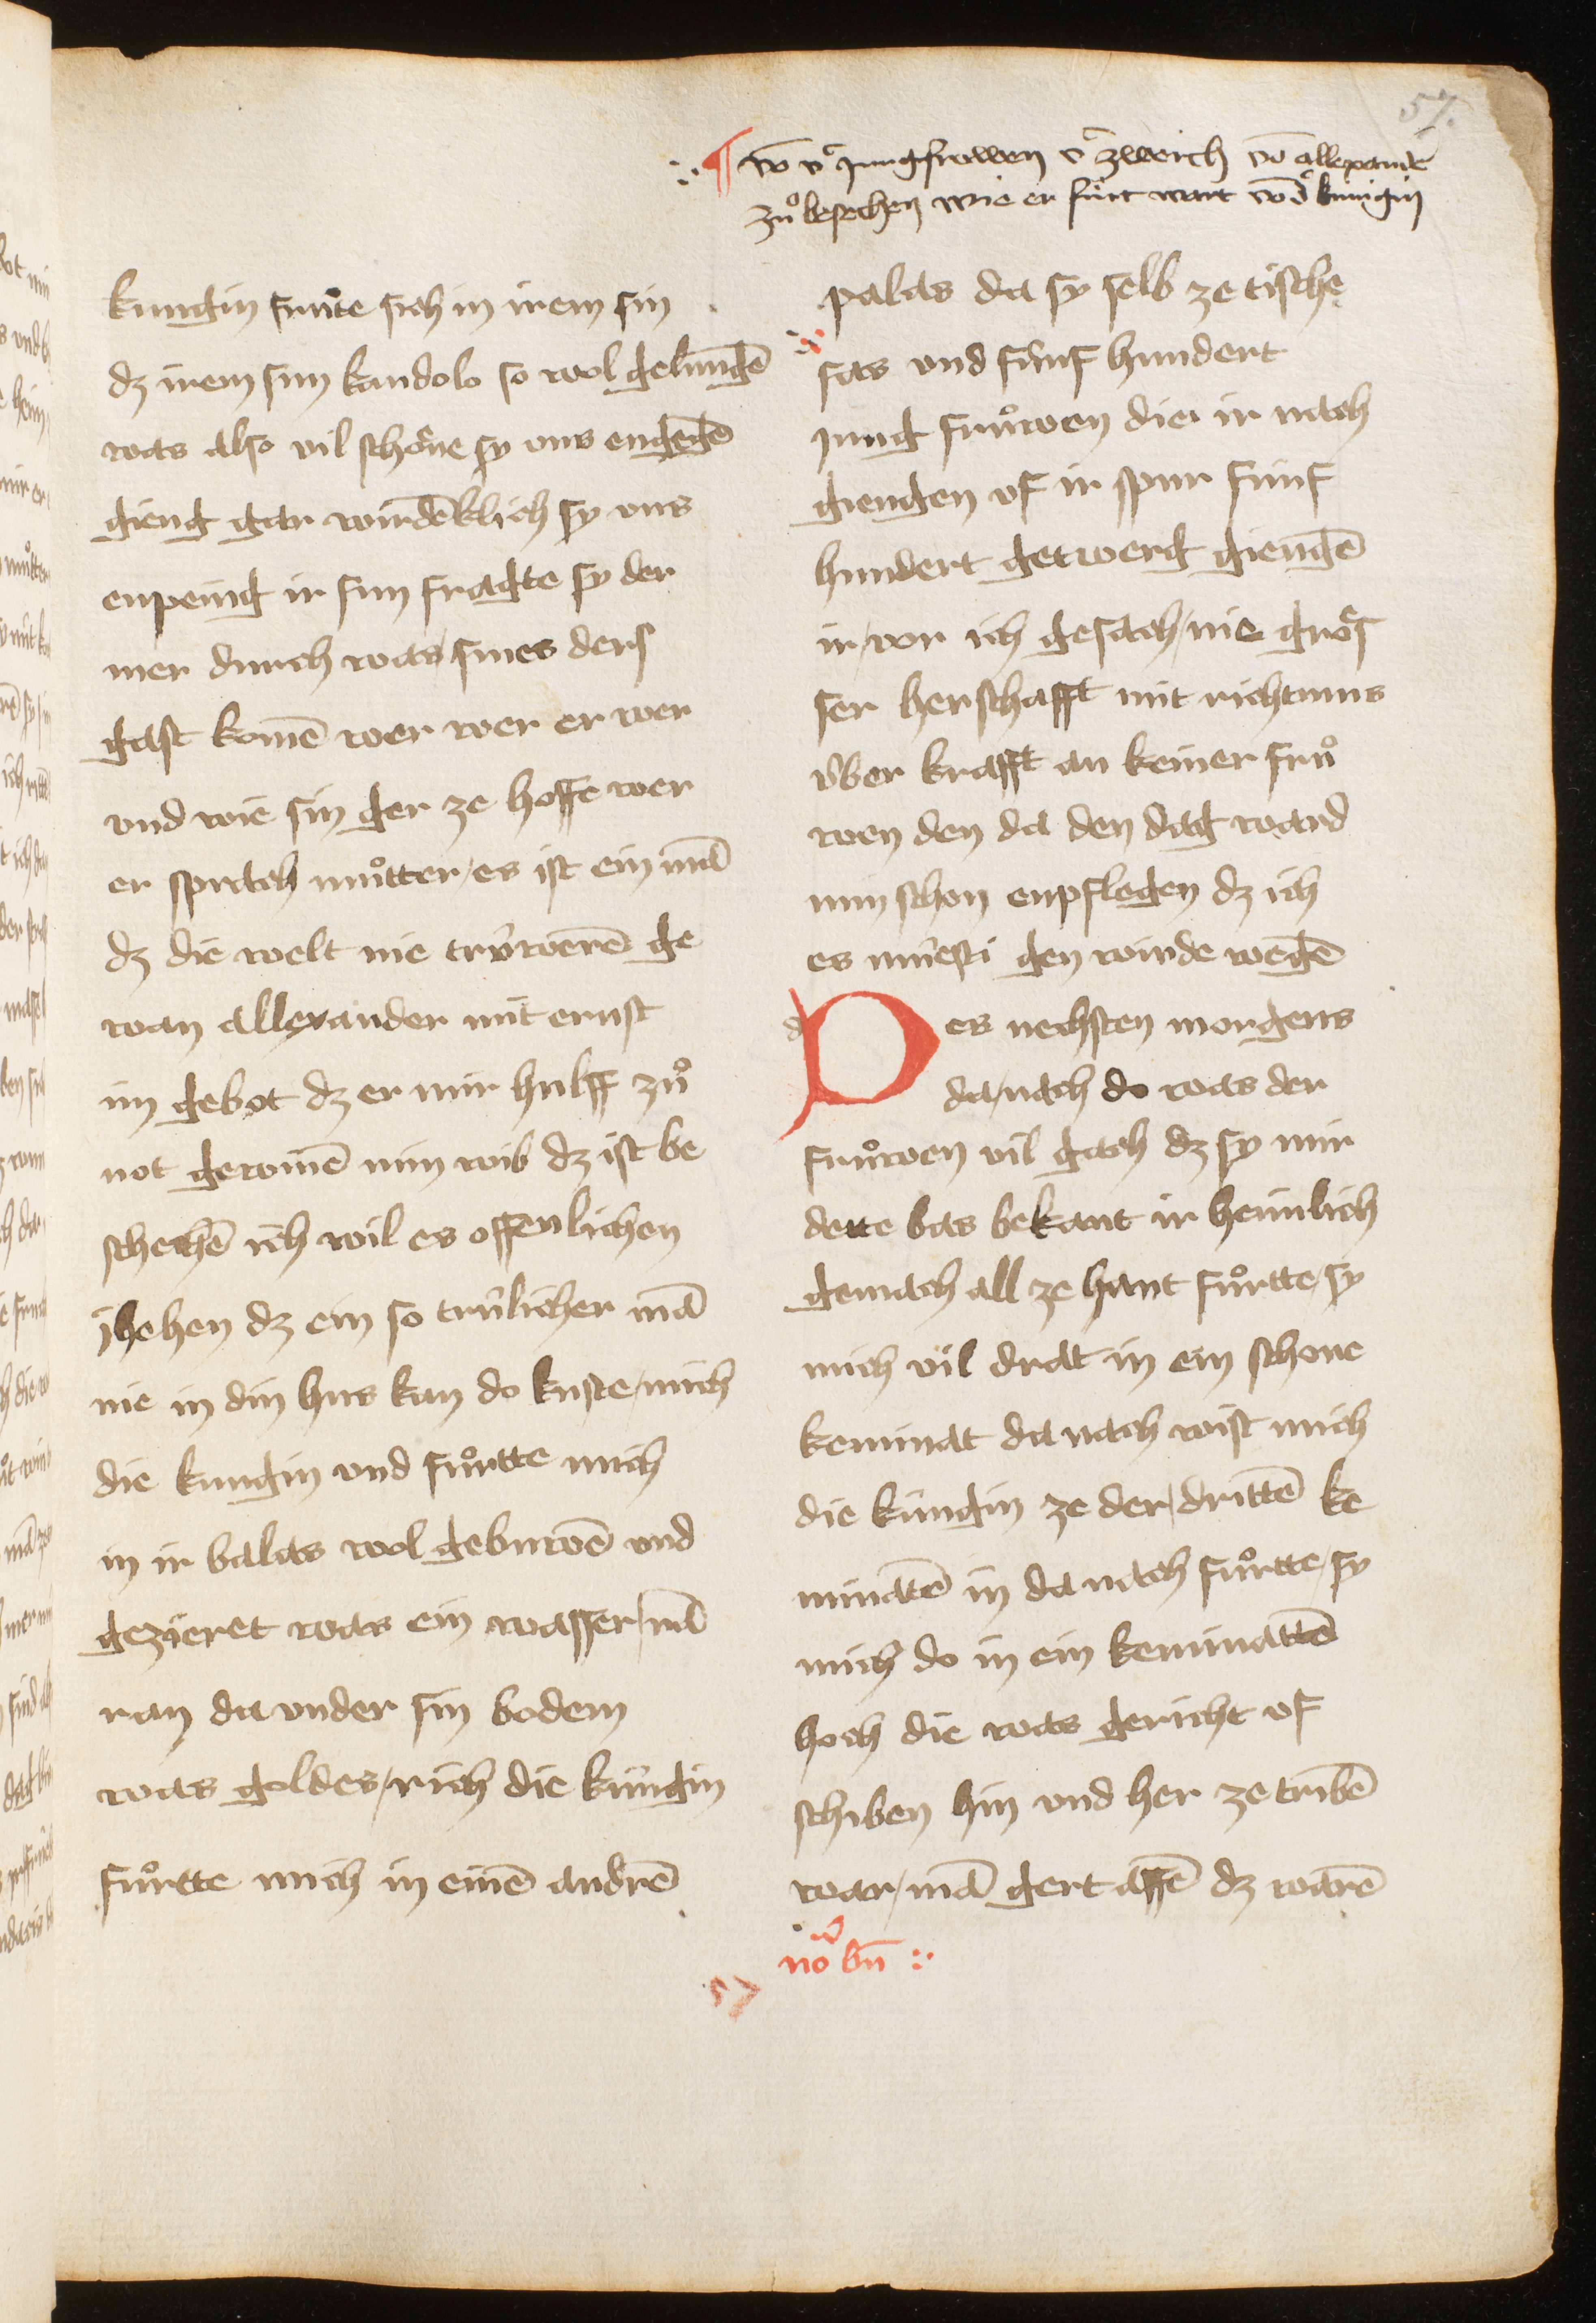 57.
vō vᷣ jungfrowen vᷣ zwerch vō allexande
zuͦ besechen wie er fürt wart vō dᷣ künigin
kungin frute sich in irem sin
dz irem sun kandolo so wol gelungē
was also vil schöne sy uns engegē
gieng gar wirdēklich sy uns
enpeing ir sun fragte sy der
mer durch was sines ders
gast komē wer wer er wer
und wie sin ger ze hoffe wer
er sprach muͦtter es ist ein mā
dz die welt nie trüwerē ge
wan allexander mit ernst
im gebot dz er mir hulff zuͦ
not gewinē min wib dz ist be
schechē ich wil es offenlichen
jhehen dz ein so trülicher mā
nie in din hus kan do kuste mich
die kungin und fuͦrtte mich
in ir balas wol gebuwē und
gezieret was ein wasser rā
ran da under sin bodem
was goldes rich die küngin
fuͦrtte mich in einē andrē
palas da sy selb ze tische
sas und fünf hundert
jung fruͦwen die ir nach
giengen uf ir spur fünf
hundert getwerg giengē
ir vor ich gesach nie grös
ser herschafft mit richtums
über krafft an keiner fruͦ
wen den da den dag ward
min schon enpflegen dz ich
es müesti gen winde wegē
d
Des nechsten morgens
da nach do was der
fruͦwen vil gach dz sy mir
dette bas bekant ir heimlich
gemach all ze hant fuͦrtte sy
mich vil drat in ein schone
keminat da nach wist mich
die küngin ze der drittē ke
minatē in da nach fuͦrtte sy
mich do in ein keminattē
hoch die was gericht uf
schiben hin und her ze tribē
war mā gert affē dz warē
nō bn̄
57